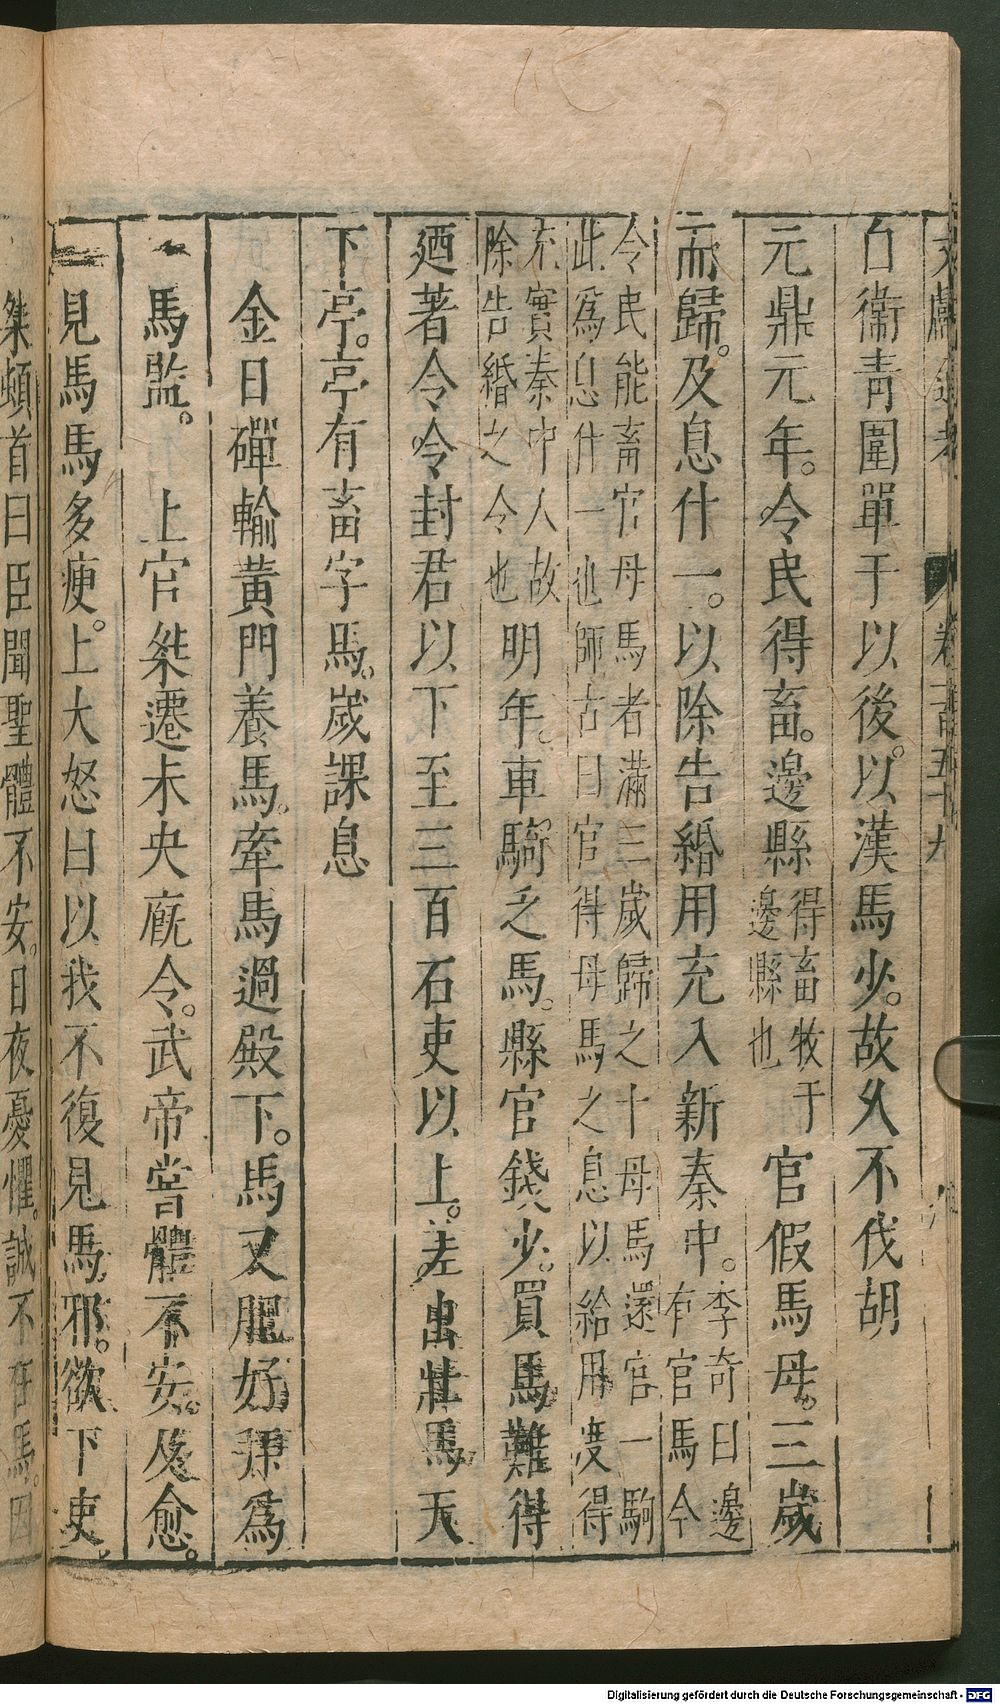 文獻通考 卷一百五十九
自衞靑圍單于以後。以漢馬少。故久不伐胡
元鼎元年。令民得畜。邊縣得畜牧于邊縣也官假馬母。三歲
而歸。及息什一。以除告緡用充入新秦中。李奇曰邊有官馬今
令民能畜官母馬者滿三歲歸之十母馬還官一駒
此爲息什一也師古曰官得母馬之息以給用度得
充實秦中人故除告緡之令也明年。車騎乏馬。縣官錢少。買馬難得
廼著令令封君以下至三百石吏以上。差出牡馬天
下亭。亭有畜字馬。歲課息
金日磾輸黃門養馬。牽馬過殿下。馬又肥好拜爲
馬監。 上官桀遷未央廐令。武帝嘗體不安。及愈。
見馬馬多瘦。上大怒曰以我不復見馬邪。欲下吏。
桀頓首曰臣聞聖體不安。日夜憂懼。誠不在馬。
Digitalisierung gefördert durch die Deutsche Forschungsgemeinschaft - DFG